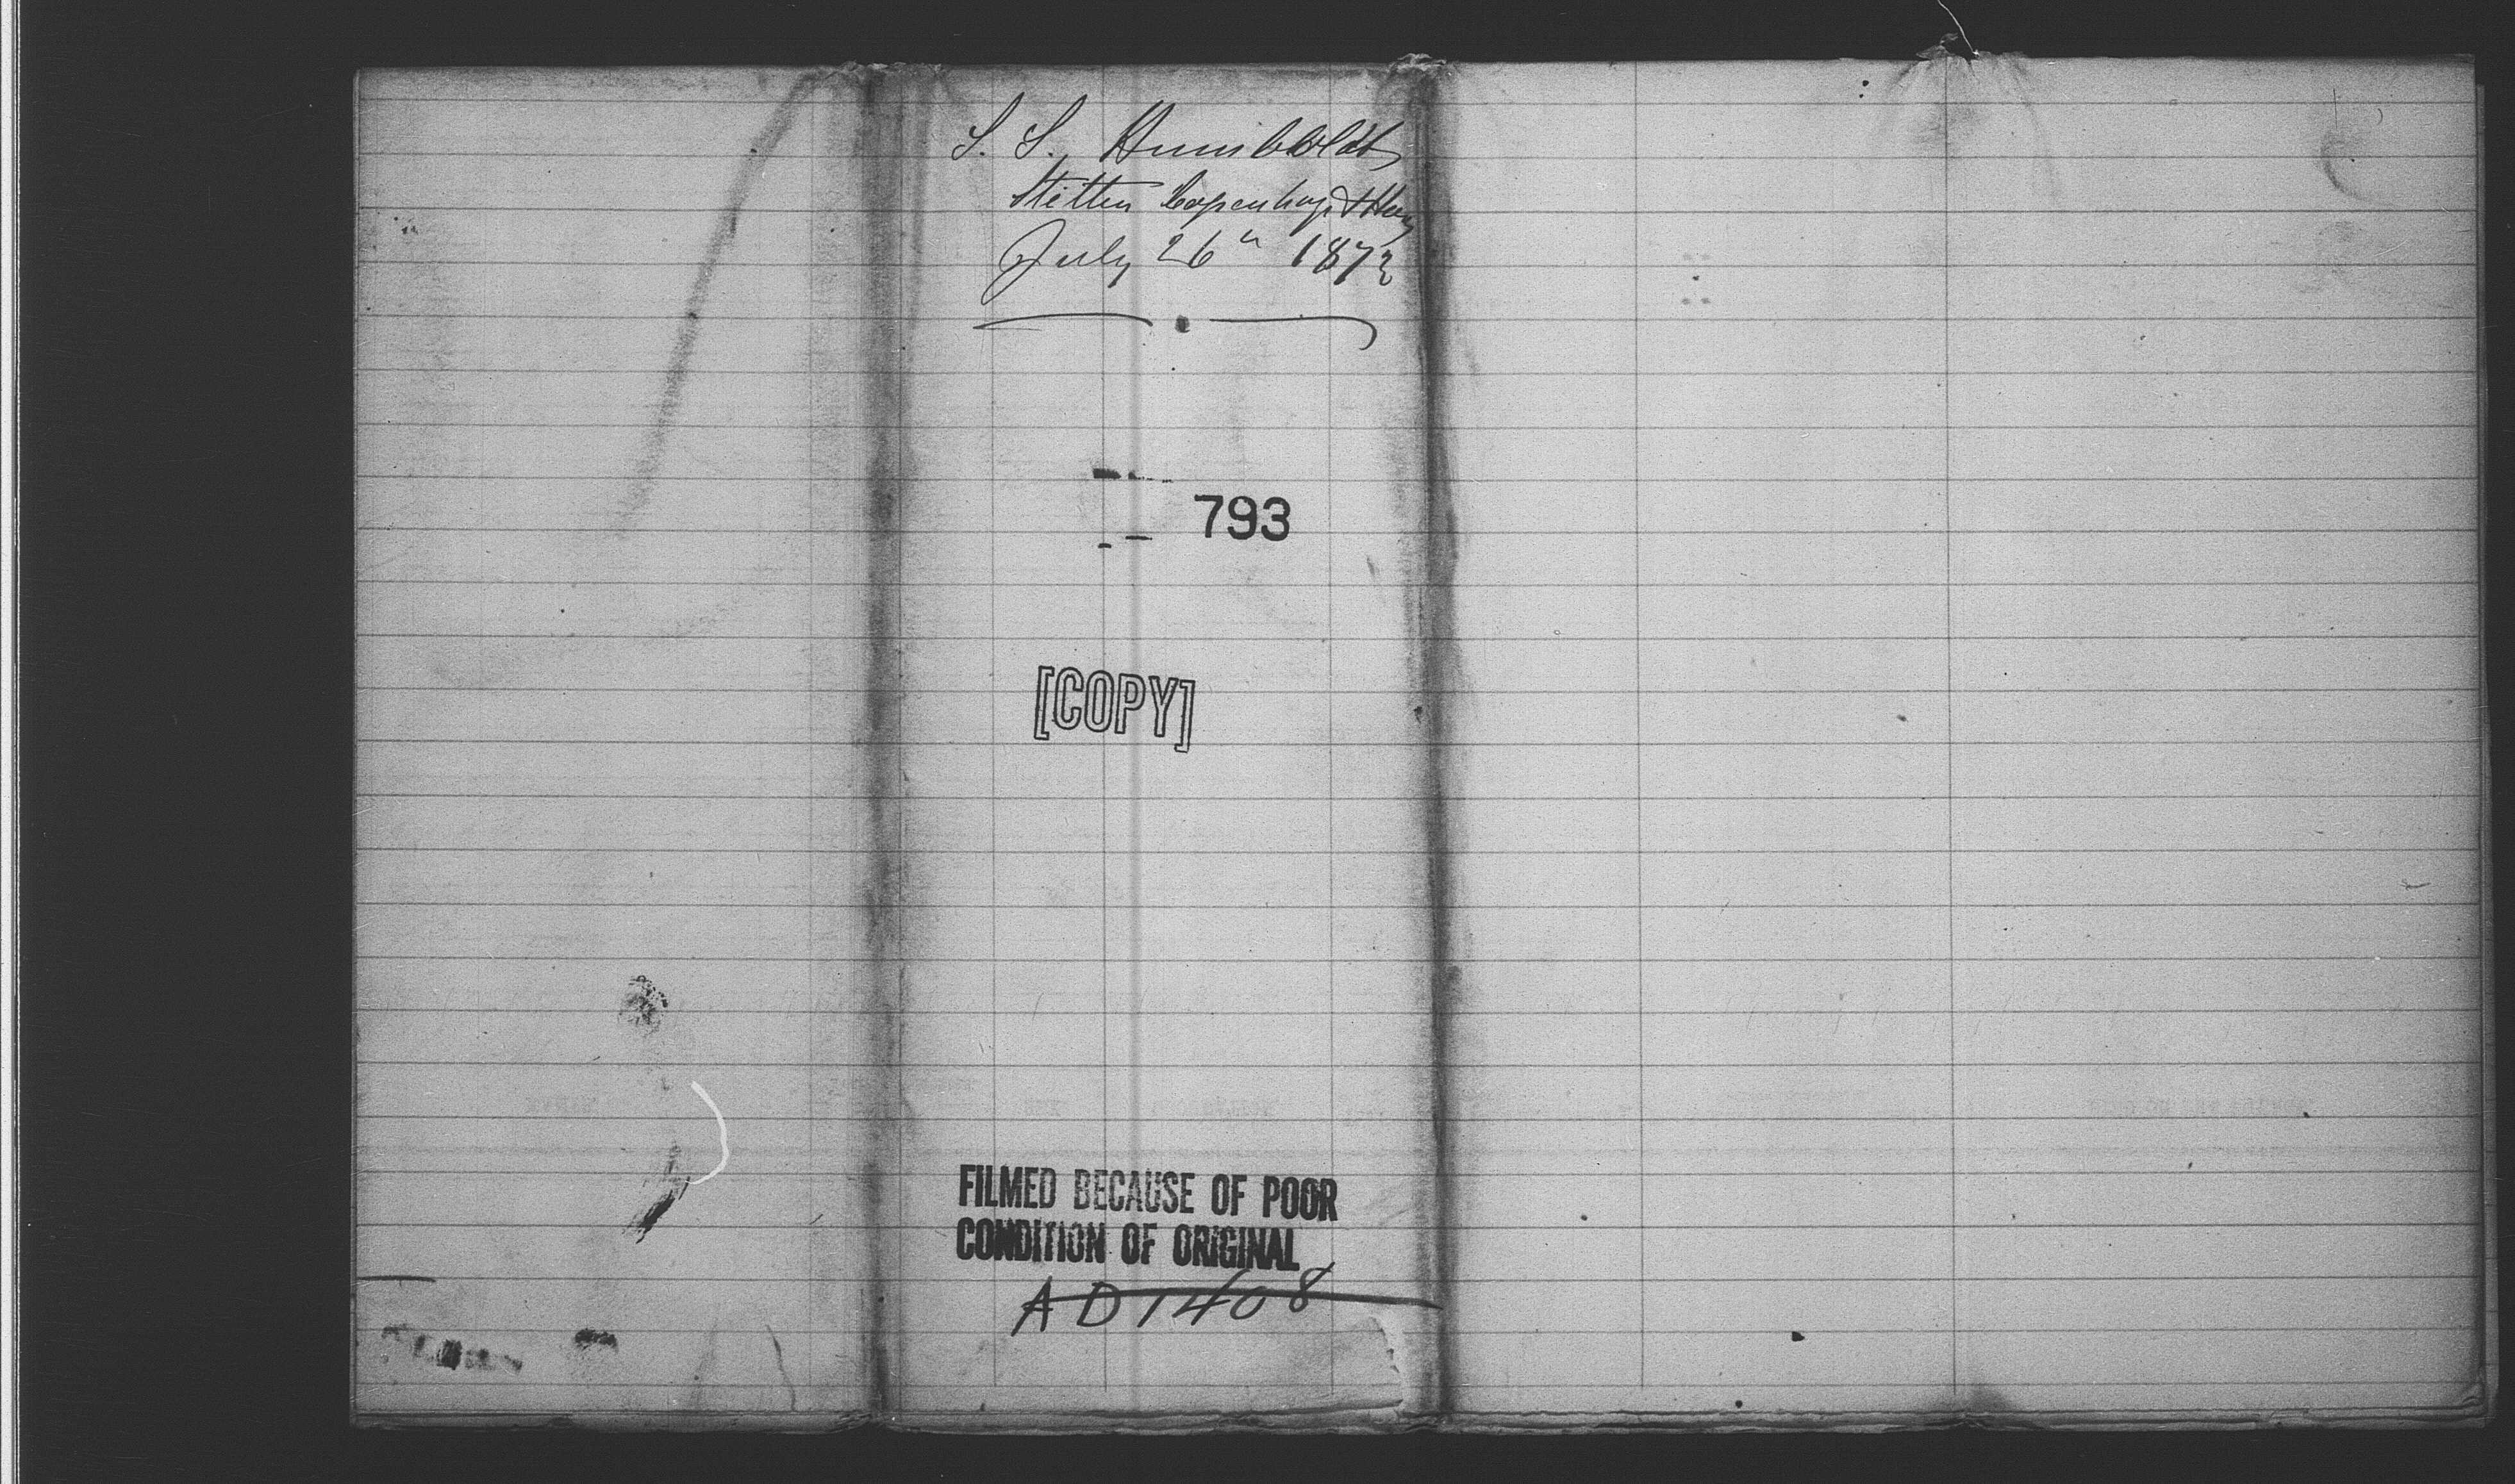 S. S. Humboldt
Stettin Copenhag. & Hav
July 26" 1872
793
[COPY]
FILMED BECAUSE OF POOR
CONDITION OF ORIGINAL
AD1408